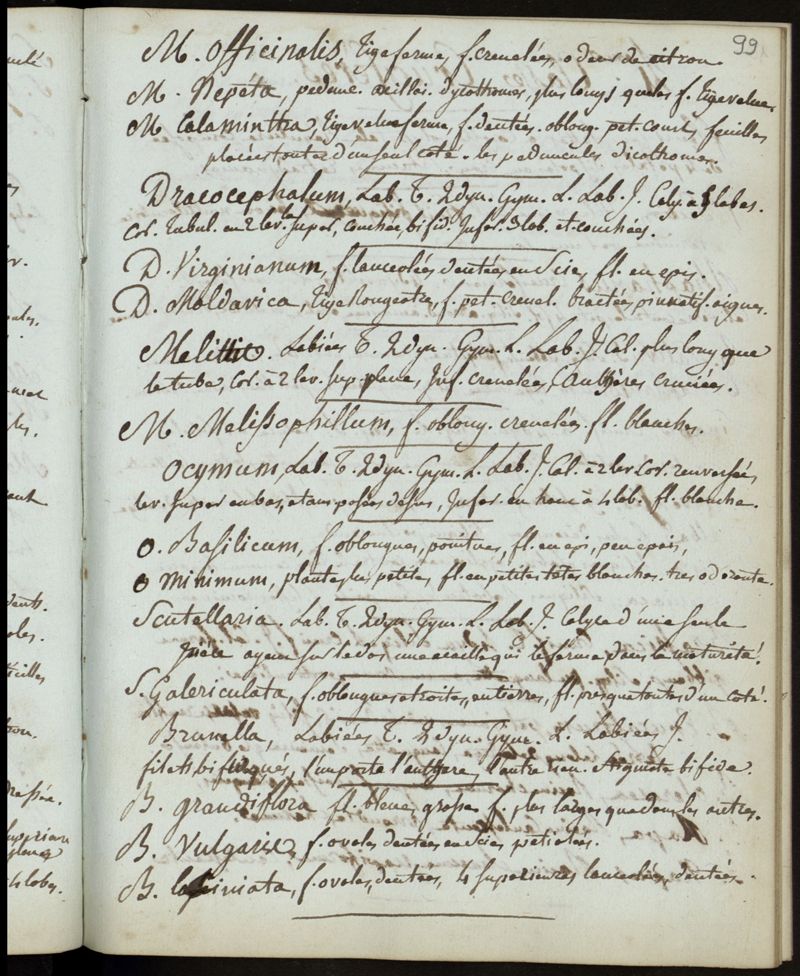 99
M. Officinalis, Tige ferme, f. crenelées, odeur de citron
M. Nepéta, pedunc. axillai. dycothomes, plus longs que les f. Tige velue.
M Calamintha, Tige velue ferme, f. dentées. oblong. pet. courts, feuilles
placées toutes d'un seul coté. les peduncules dicothomes.
Dracocephalum, Lab. T. 2dyn. Gym. L. Lab. J. Caly. à 5 lobes.
Cor. Tubul. en 2 lev. la super, couchée, bifid. Infer. 3 lob. et couchées.
D. Virginianum, f. lanceolées dentées en Scie, fl. en epis.
D. Moldavica, Tige Rougeatre, f. pet. crenel. bractées pinnatif. aigues.
Melittis. Labiées T. 2dyn. Gym. L. Lab. J. Cal. plus long que
le tube, Cor. à 2 lev. Sup. plane, Inf. crenelées, Anthères cruciées.
M. Melissophillum, f. oblong. crenelées. fl. blanches.
Ocymum Lab. T. 2dyn. Gym. L. Lab. J. Cal. à 2 lev Cor. renversées
lev. super en bas, etans posées dessus, Infer. en haut à 4 lob. fl. blanche.
O. Basilicum, f. oblongues, pointues, fl. en epis, peu epais,
O Minimum, plante plus petite, fl. en petites têtes blanches. tres odorante.
Scutellaria. Lab. T. 2dyn. Gym. L. Lab. J. Calyce d'une seule
pièce ayant sur le dos une ecaille qui le ferme dans la maturité.
S. Galericulata, f. oblongues etroites, entières, fl. presque toutes d'un coté.
Brunella, Labiées T. 2dyn. Gym. L. Labiées J.
filets bifurqués, l'un porte l'anthere, l'autre rien. Stigmate bifide.
B. grandiflora fl. bleue, grosse f. plus larges que dans les autres.
B. Vulgaris, f. ovales dentées en Scie petiolées.
B. laciniata, f. ovales, dentées, 4 superieures lanceolées, dentées.